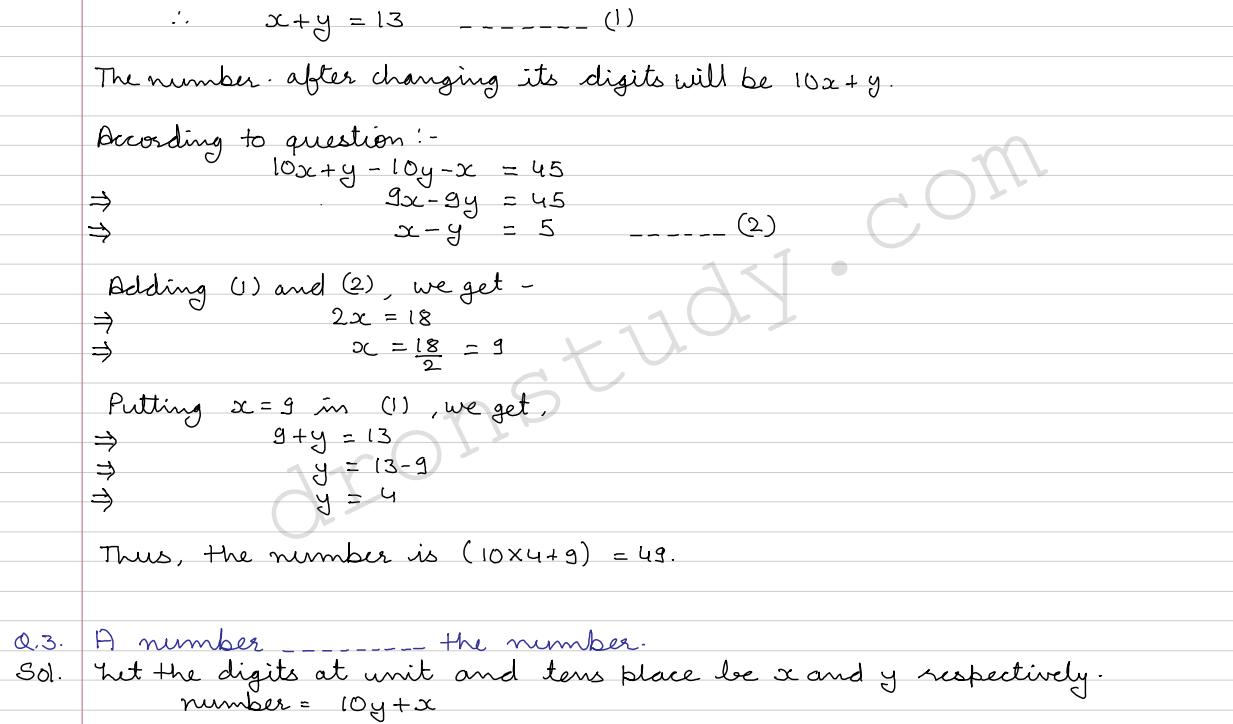 ∴ x+y = 13 ------- (1)
The number. after changing its digits will be 10x+y.
According to question :-
10x+y-10y-x = 45
⇒ 9x-9y = 45
⇒ x-y = 5 ------ (2)
Adding (1) and (2), we get -
⇒ 2x = 18
⇒ x = 18/2 = 9
Putting x=9 in (1), we get,
⇒ 9+y = 13
⇒ y = 13-9
⇒ y = 4
Thus, the number is (10×4+9) = 49.
Q.3. A number --------- the number.
Sol. Let the digits at unit and tens place be x and y respectively.
number = 10y+x
dronstudy.com